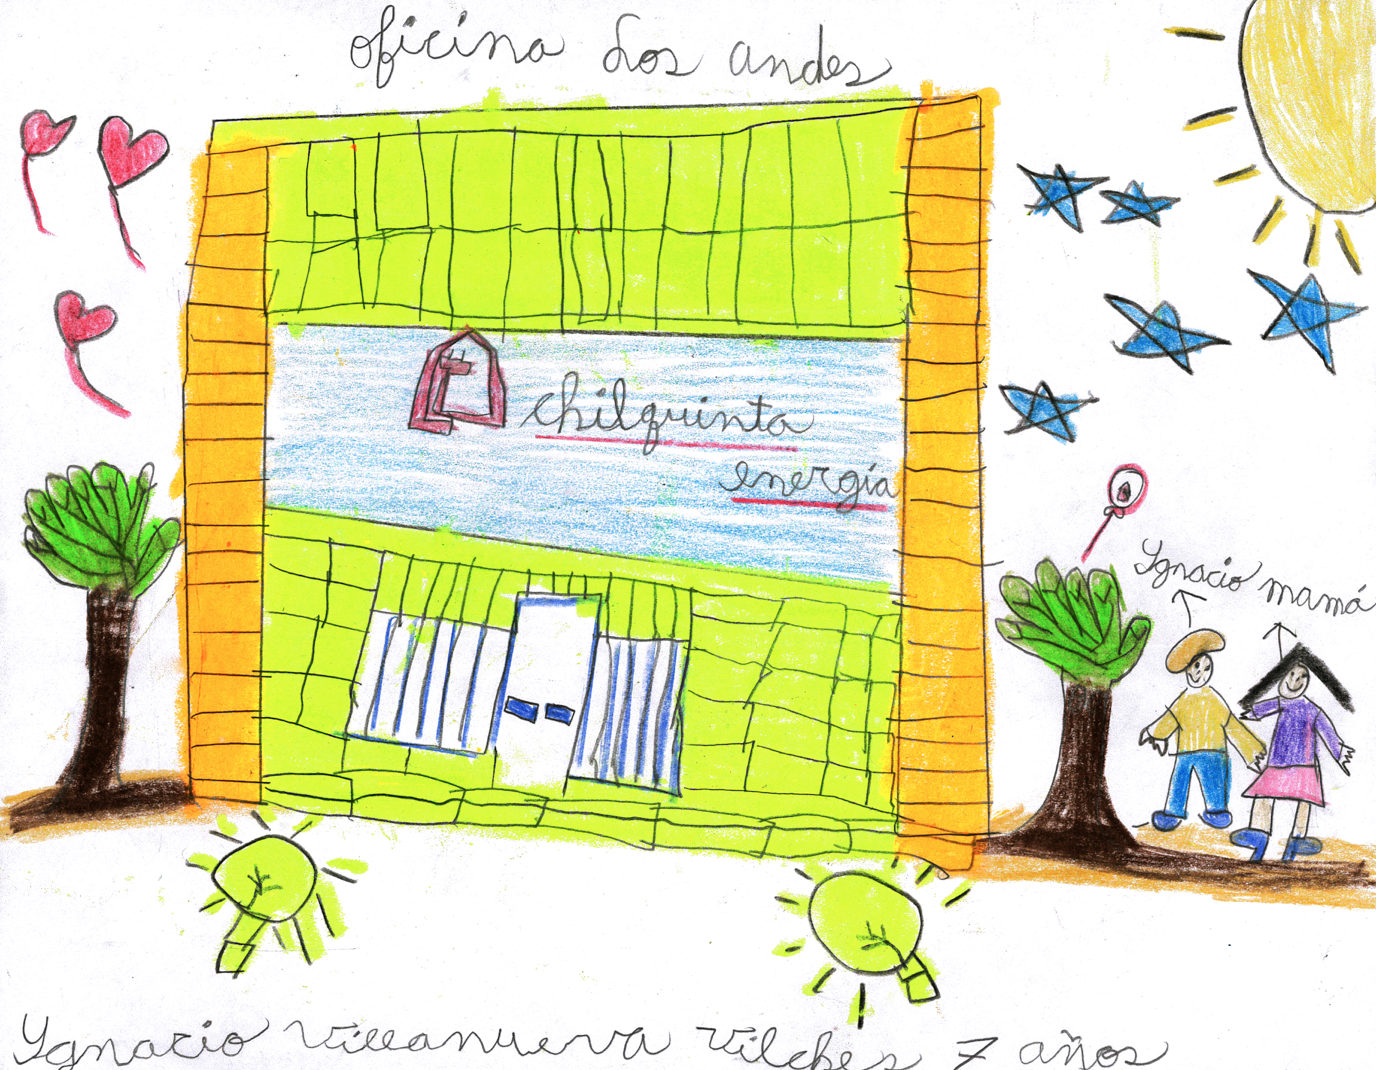 oficina Los andes
chilquinta
energía
Ygnacio mamá
Ygnacio Villanueva Vilches 7 años